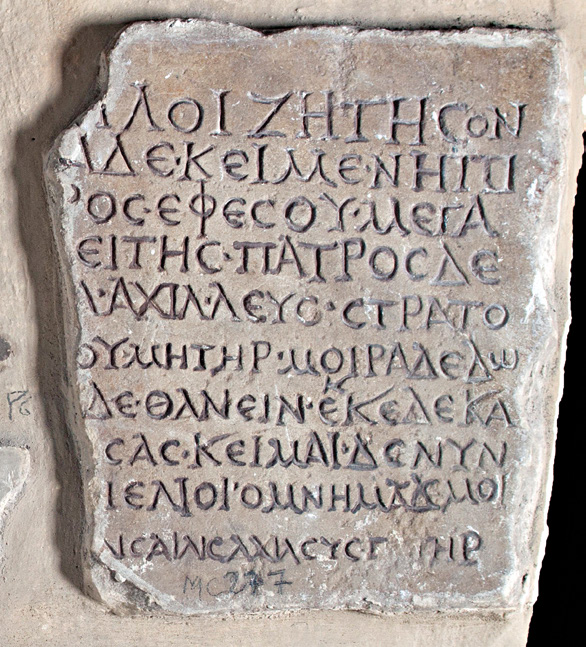 ΙΛΟΙ ΖΗΤΗϹΟΝ
ΑΔΕ·ΚΕΙΜΕΝΗΤΙ
ΟϹ·ΕΦΕϹΟΥ·ΜΕΓΑ
ΕΙΤΗϹ·ΠΑΤΡΟϹΔΕ
ΑΧΙΛ·ΛΕΥϹ·ϹΤΡΑΤΟ
ΟΥ·ΜΗΤΗΡ·ΜΟΙΡΑΔΕΔΩ
ΔΕΘΑΝΕΙΝ·ΕΚΕΔΕΚΑ
ϹΑϹ·ΚΕΙΜΑΙ·ΔΕΝΥΝ
ΙΕΛΙΟΙΟΜΝΗΜΑΔΕΜΟΙ
MC277